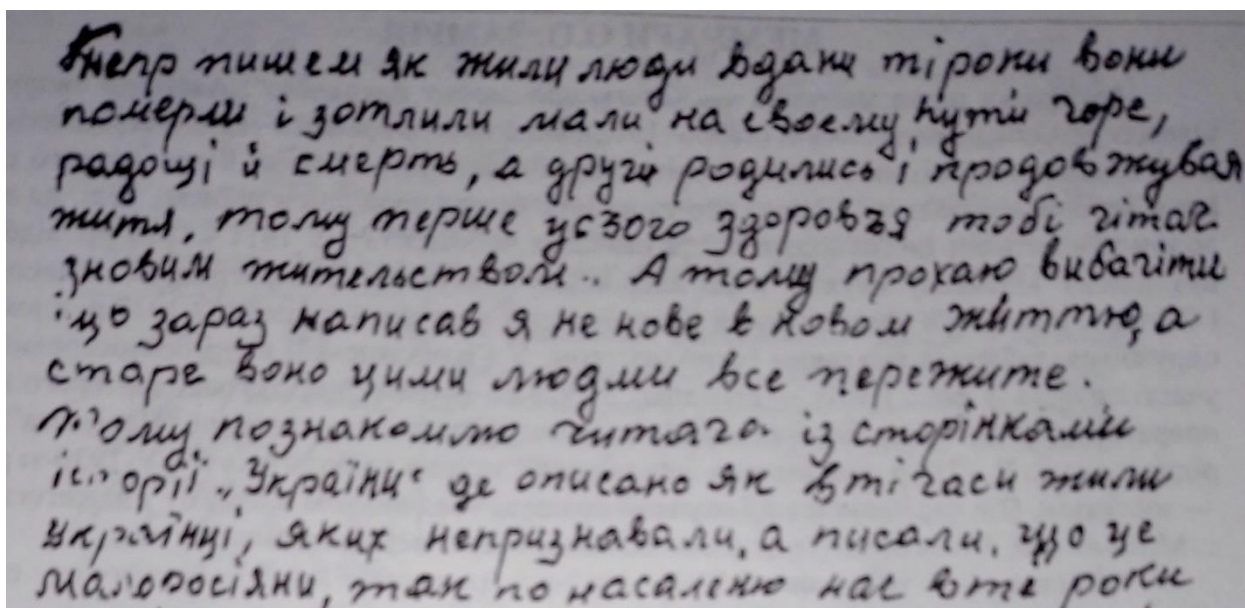 Тнепр пишем як жили люди вдани тіроки вони
померли і зотлили мали на своему путй горе,
радощі й смерть, а другі родились і продовжувая
житя, тому перше усзого здоровъя тобі чітач
зновим жительством.. А тому прохаю вибачіти
що зараз написав я не нове в новом життю, а
старе воно цими людми все пережите.
Тому познакомлю читача із сторінками
історії „Україны“ де описано як втічаси жили
Українці, яких непризнавали, а писали, що це
малоросіяни, так по насаленю нас вте роки